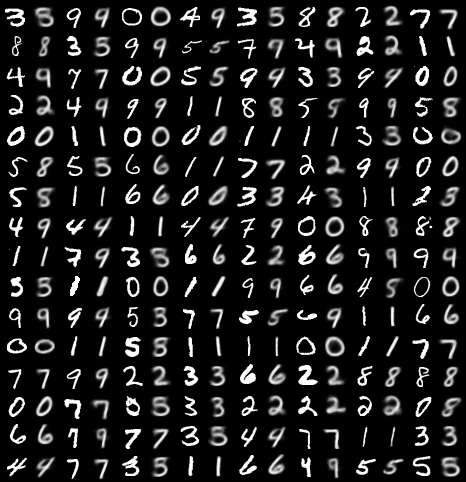 3 5 9 9 0 0 4 9 3 5 8 8 2 2 7 7
8 8 3 5 9 9 5 5 7 9 4 9 2 2 1 1
4 9 7 7 0 0 5 5 9 9 3 3 9 9 0 0
2 2 4 9 9 9 1 1 8 8 5 9 9 9 5 8
0 0 1 1 0 0 0 0 1 1 1 1 3 3 0 0
5 8 5 5 6 6 1 1 7 7 2 2 9 9 0 0
5 8 1 1 6 6 0 0 3 3 4 3 1 1 2 3
4 9 4 4 1 1 4 4 7 9 0 0 8 8 8 8
1 1 7 9 3 5 6 6 2 2 6 6 9 9 9 9
3 5 1 1 0 0 1 1 9 9 6 6 4 5 0 0
9 9 9 9 5 3 7 7 5 5 6 9 1 1 6 6
0 0 1 1 5 5 1 1 1 1 0 0 1 1 7 7
7 7 9 9 2 2 3 3 6 6 2 2 8 8 8 8
0 0 7 7 0 5 3 3 2 2 2 2 2 2 0 8
6 6 7 9 7 7 3 5 4 4 7 7 1 1 3 3
4 4 7 7 3 5 1 1 6 6 4 9 5 5 5 5